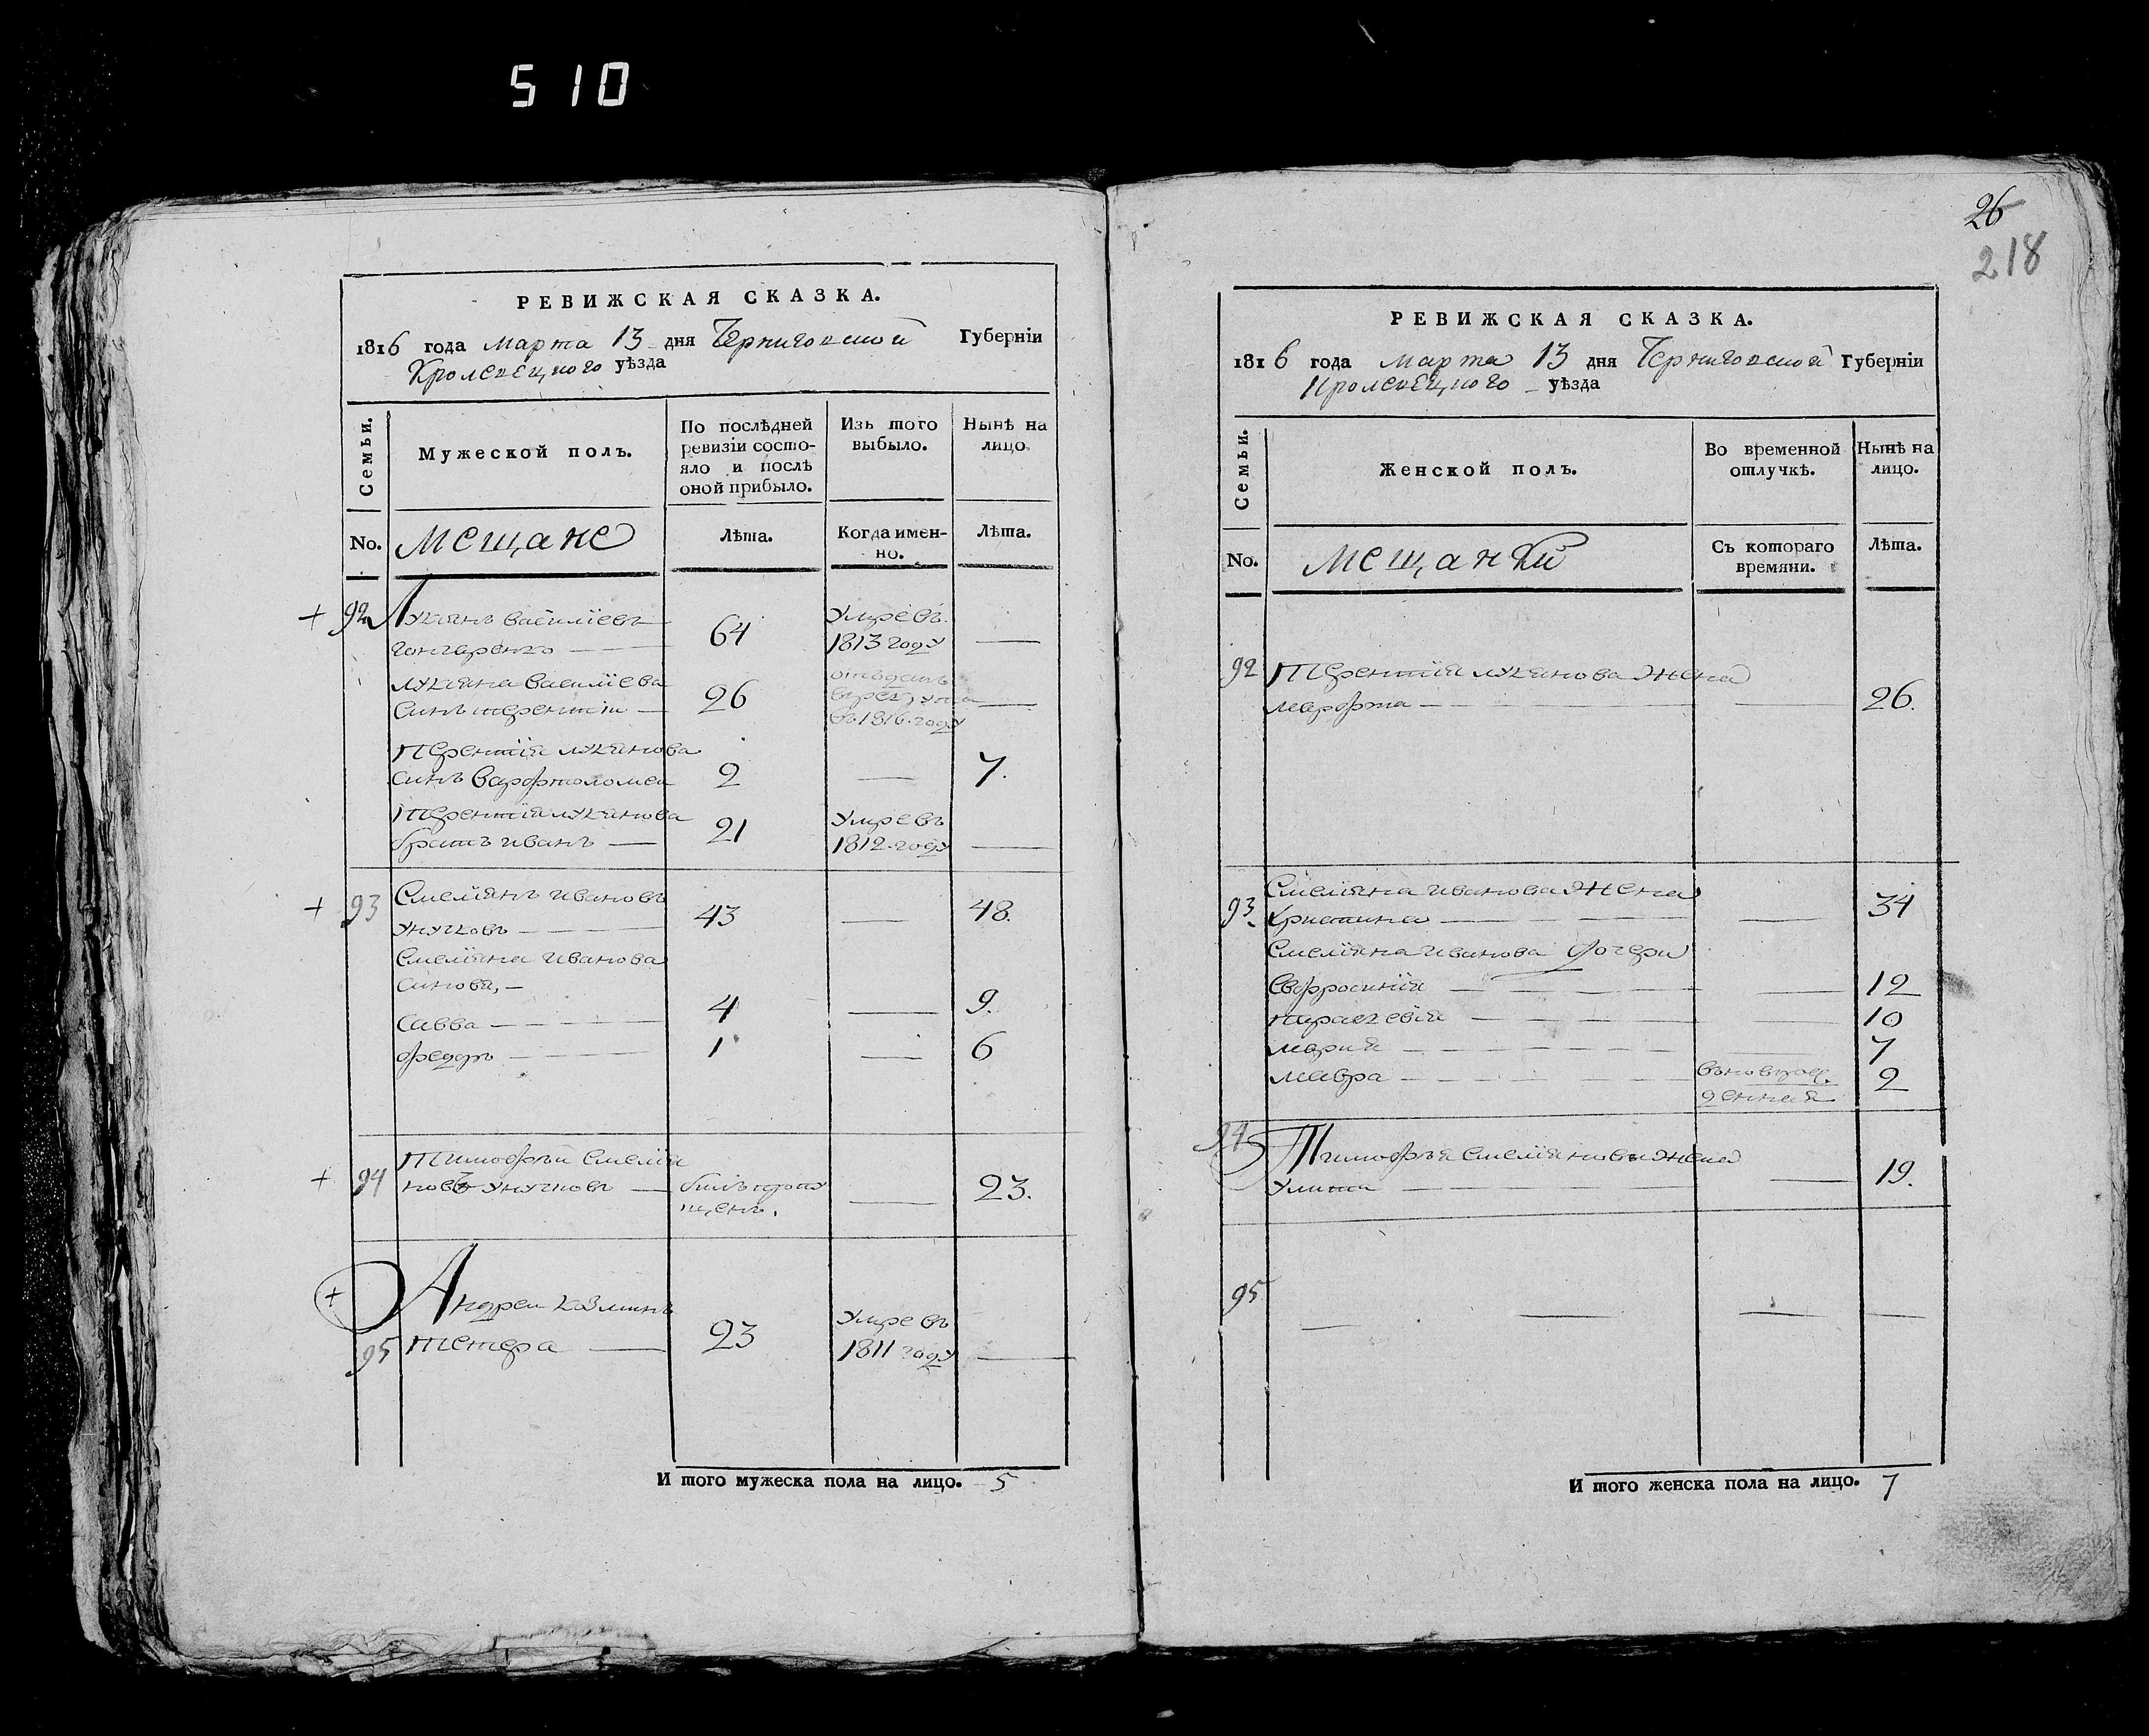 510
РЕВИЖСКАЯ СКАЗКА.
1816 года марта 13 дня Черниговской Губерніи
Кролевецкого уѣзда
Семьи.
Мужеской полъ.
По послѣдней ревизіи состо-
яло и послѣ
оной прибыло.
Изъ того
выбыло.
Нынѣ на
лицо.
No.
мещане
Лѣта.
Когда имен-
но.
Лѣта.
+ 92 Лукянъ Василіевъ
гончаренко 64 Умревъ 1813 году
лукяна Василіева
синъ терентій 26 отъданъ
в рекрута
въ 1816 году
терентія лукянова
синъ Варфтоломеи 2 7.
терентія лукянова
братъ иванъ 21 Умревъ
1812 году
+ 93 Смеліянъ ивановъ
унучковъ 43 48.
Смеліяна иванова
синови,
Савва 4 9.
феддръ 1 6
+ 94 тимофѣи Смелія
новъ унучковъ билъ пропу
щенъ. 23.
+ Андреи козминъ
95 тетера 23 Умревъ
1811 году
И того мужеска пола на лицо. 5
26
218
РЕВИЖСКАЯ СКАЗКА.
1816 года марта 13 дня Черниговской Губерніи
Кролевецкого уѣзда
Семьи.
Женской полъ.
Во временной
отлучкѣ.
Нынѣ на
лицо.
No.
мещанки
Съ котораго
времяни.
Лѣта.
92 терентія лукянова жена
марфта 26.
93 Смеліяна иванова жена
христина 34
Смеліяна иванова дочери
Евфросинія 12
параскевія 10
марія 7
мавра вновьрож
денная 2
94 Тимофѣя Смеліянова жена
улита 19.
95
И того женска пола на лицо. 7